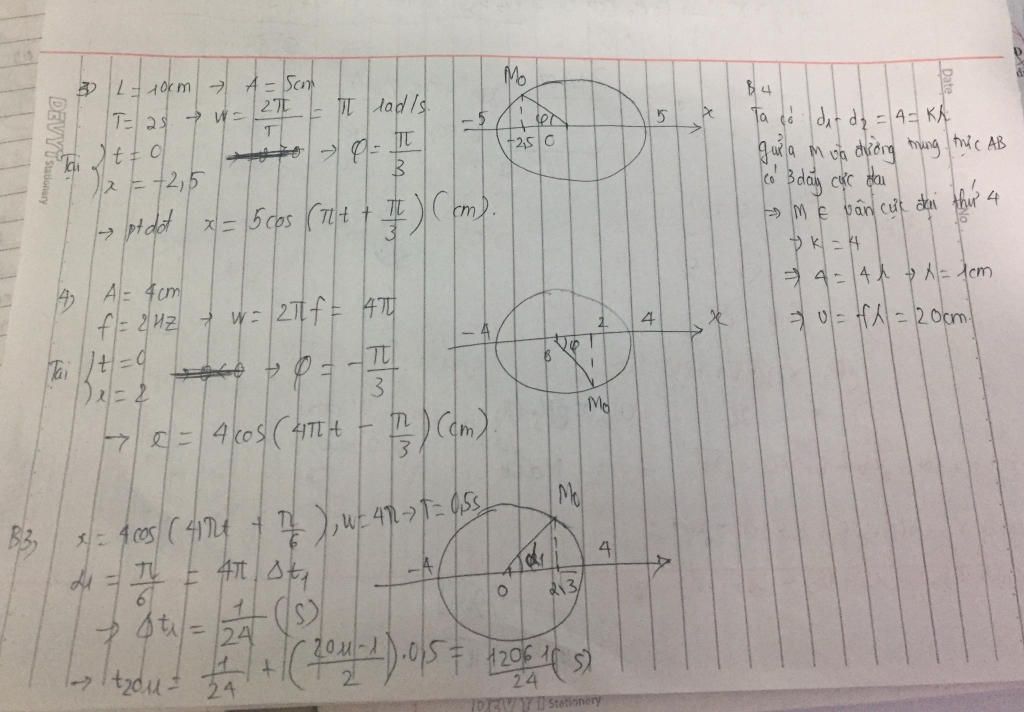 3) L = 10cm → A = 5cm
T = 2s → w = 2π/T = π rad/s
Tại { t = 0
x = -2,5 → φ = π/3
→ ptdđ x = 5cos (πt + π/3) (cm).
M0
-5 -2,5 φ O 5 x
4) A = 4cm
f = 2HZ → w = 2πf = 4π
Tại { t = 0
x = 2 → φ = -π/3
→ x = 4cos (4πt - π/3) (cm)
-4 φ 2 4 x
M0
B3, x = 4cos (4πt + π/6), w = 4π → T = 0,5s
α1 = π/6 = 4π . Δt1
→ Δt1 = 1/24 (s)
→ t2011 = 1/24 + (2011-1/2) . 0,5 = 12061/24 (s)
M0
-4 O α1 2√3 4
B4
Ta có: d1 - d2 = 4 = Kλ
giữa M và đường trung trực AB
có 3 dãy cực đại
→ M ∈ vân cực đại thứ 4
→ K = 4
⇒ 4 = 4λ → λ = 1cm
⇒ v = fλ = 20cm
DEVYT Stationery
Date
No
Stationery